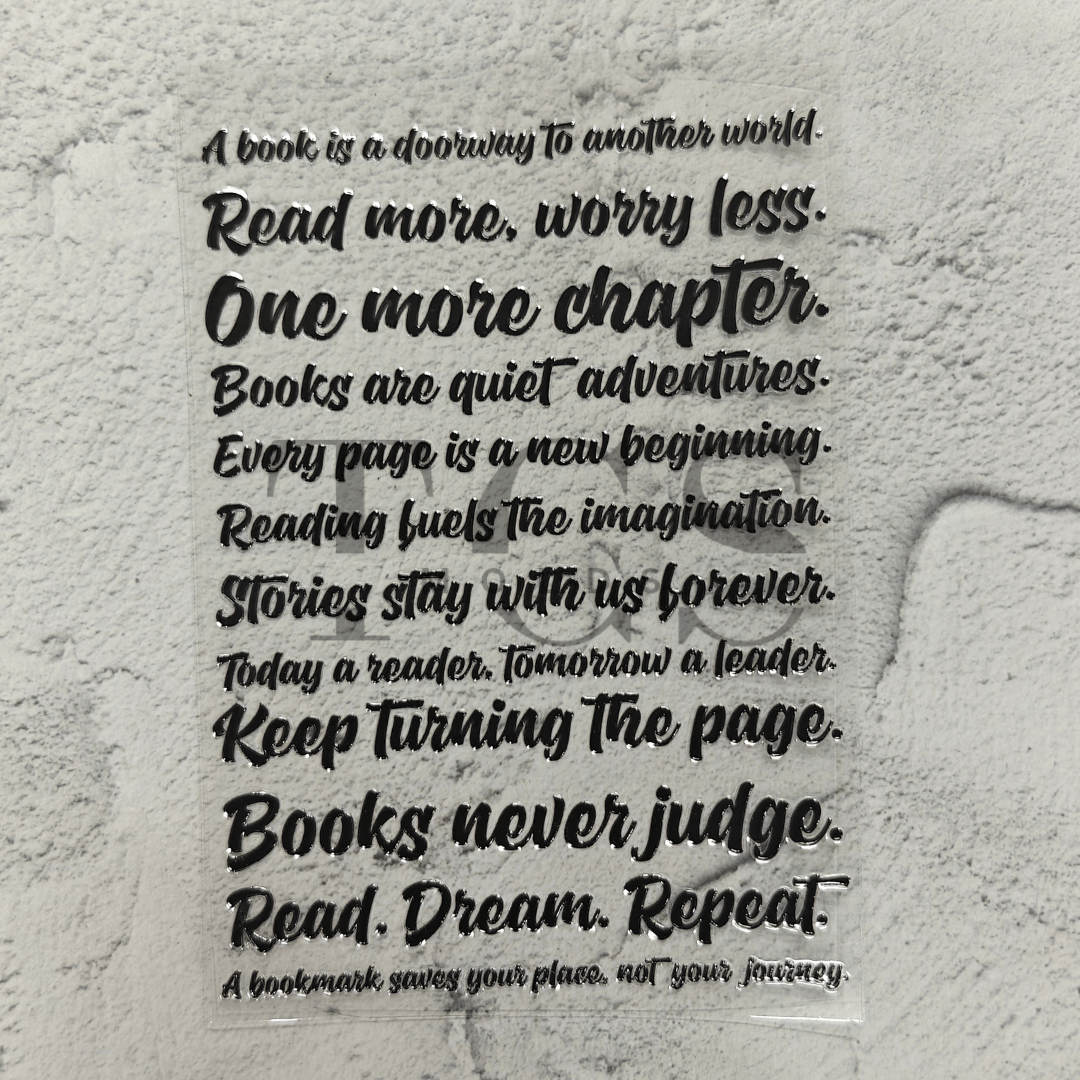 A book is a doorway to another world.
Read more, worry less.
One more chapter.
Books are quiet adventures.
Every page is a new beginning.
Reading fuels the imagination.
Stories stay with us forever.
Today a reader, tomorrow a leader.
Keep turning the page.
Books never judge.
Read. Dream. Repeat.
A bookmark saves your place, not your journey.
TGS
MOLDS